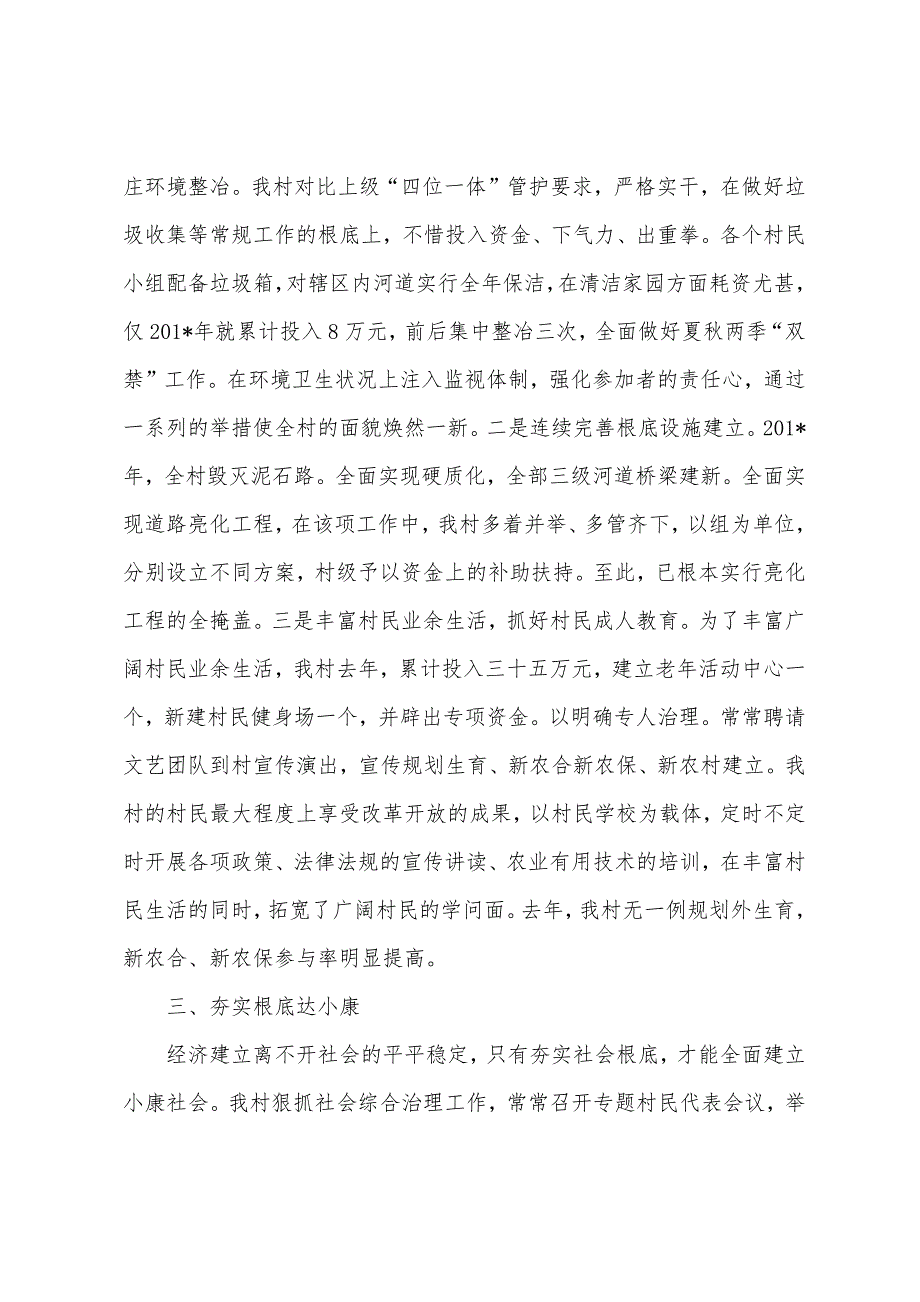 庄环境整冶。我村对比上级“四位一体”管护要求，严格实干，在做好垃
圾收集等常规工作的根底上，不惜投入资金、下气力、出重拳。各个村民
小组配备垃圾箱，对辖区内河道实行全年保洁，在清洁家园方面耗资尤甚，
仅 201*年就累计投入 8 万元，前后集中整冶三次，全面做好夏秋两季“双
禁”工作。在环境卫生状况上注入监视体制，强化参加者的责任心，通过
一系列的举措使全村的面貌焕然一新。二是连续完善根底设施建立。201*
年，全村毁灭泥石路。全面实现硬质化，全部三级河道桥梁建新。全面实
现道路亮化工程，在该项工作中，我村多着并举、多管齐下，以组为单位，
分别设立不同方案，村级予以资金上的补助扶持。至此，已根本实行亮化
工程的全掩盖。三是丰富村民业余生活，抓好村民成人教育。为了丰富广
阔村民业余生活，我村去年，累计投入三十五万元，建立老年活动中心一
个，新建村民健身场一个，并辟出专项资金。以明确专人治理。常常聘请
文艺团队到村宣传演出，宣传规划生育、新农合新农保、新农村建立。我
村的村民最大程度上享受改革开放的成果，以村民学校为载体，定时不定
时开展各项政策、法律法规的宣传讲读、农业有用技术的培训，在丰富村
民生活的同时，拓宽了广阔村民的学问面。去年，我村无一例规划外生育，
新农合、新农保参与率明显提高。
三、夯实根底达小康
经济建立离不开社会的平平稳定，只有夯实社会根底，才能全面建立
小康社会。我村狠抓社会综合治理工作，常常召开专题村民代表会议，举